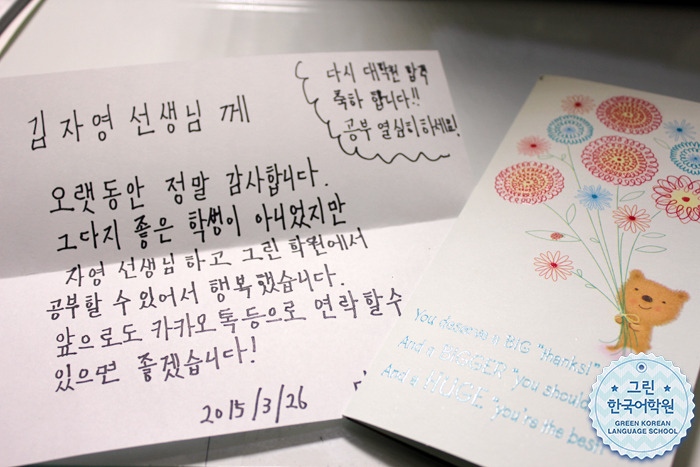 김 자영 선생님 께
다시 대학원 합격
축하 합니다!!
공부 열심히 하세요!
오랫동안 정말 감사합니다.
그다지 좋은 학생이 아니었지만
자영 선생님 하고 그린 학원에서
공부할 수 있어서 행복했습니다.
앞으로도 카카오톡등으로 연락할수
있으면 좋겠습니다!
2015/3/26
You deserve a BIG "thanks!"
And a BIGGER "you should
And a HUGE "you're the best
그린
한국어학원
GREEN KOREAN
LANGUAGE SCHOOL